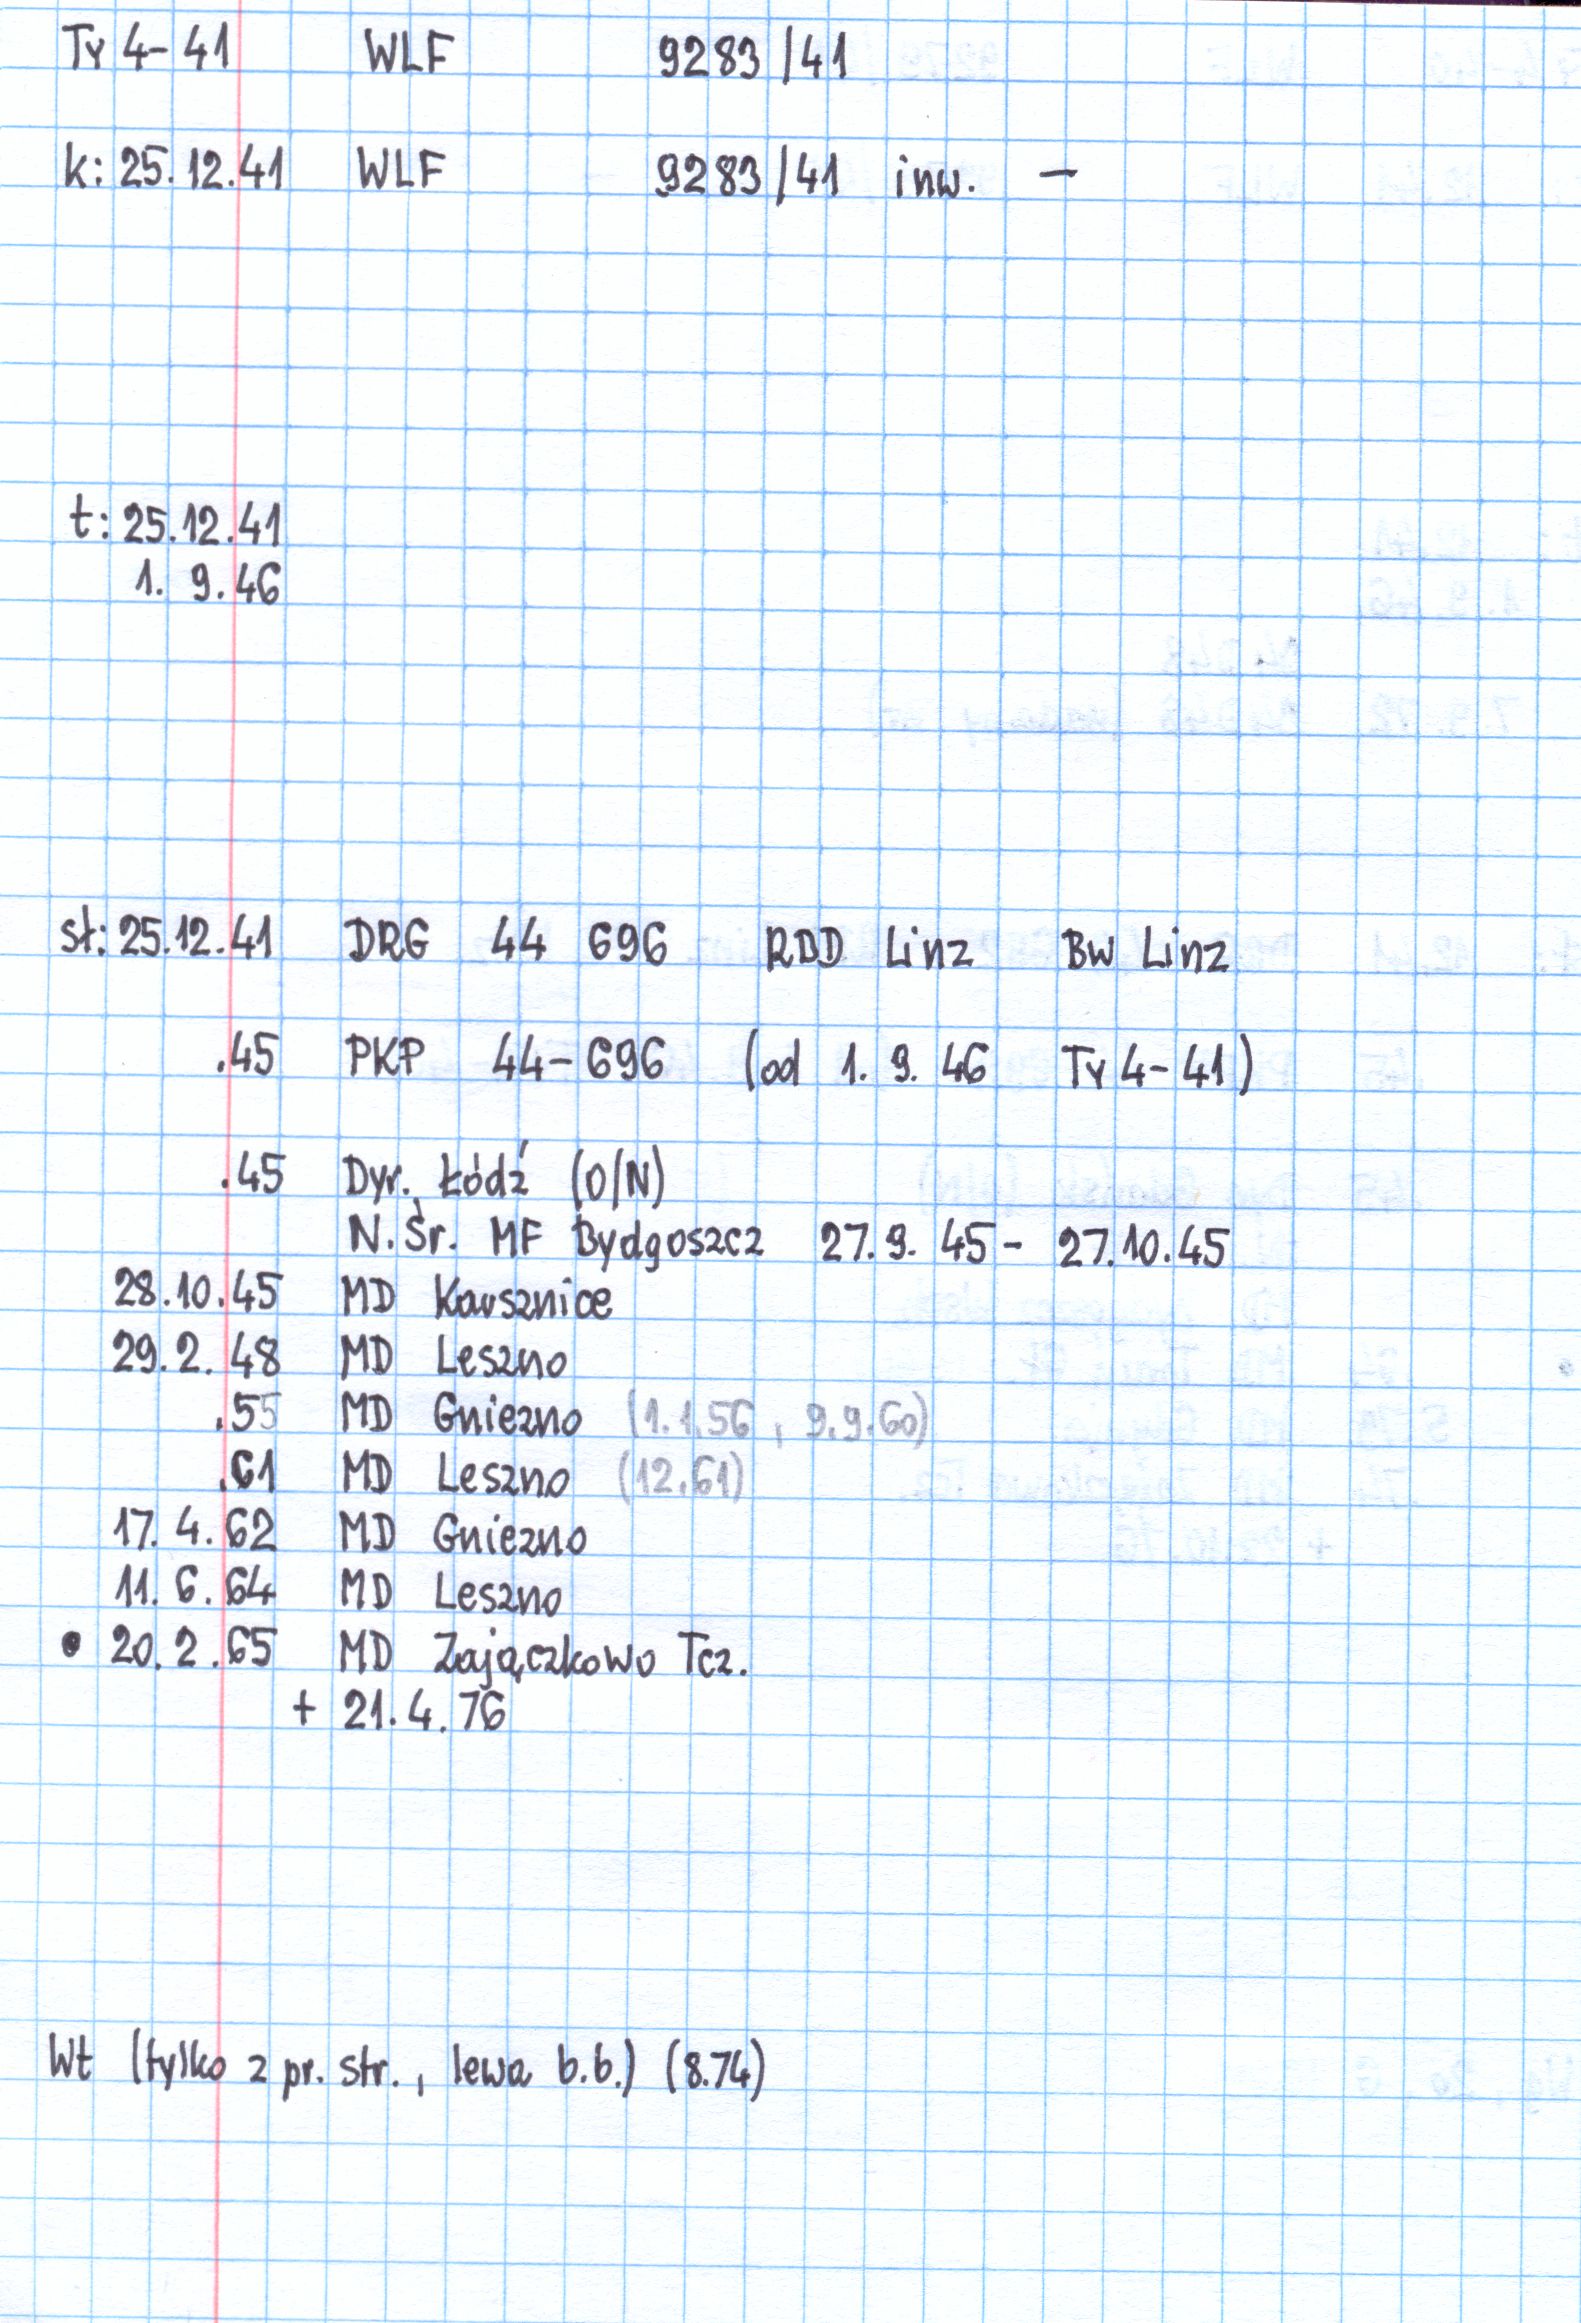 Ty 4-41 WLF 9283/41
k: 25.12.41 WLF 9283/41 inw. –
t: 25.12.41
1. 9.46
sł: 25.12.41 DRG 44 696 RBD Linz BW Linz
.45 PKP 44-696 (od 1. 9. 46 Ty 4-41)
.45 Dyr. Łódź (O/N)
N.Śr. MF Bydgoszcz 27.9.45 - 27.10.45
28.10.45 MD Karsznice
29.2.48 MD Leszno
.55 MD Gniezno (1.1.56, 9.9.60)
.61 MD Leszno (12.61)
17.4.62 MD Gniezno
11.6.64 MD Leszno
• 20.2.65 MD Zajączkowo Tcz.
+ 21.4.76
Wt (tylko z pr. str., lewa b.b.) (8.74)